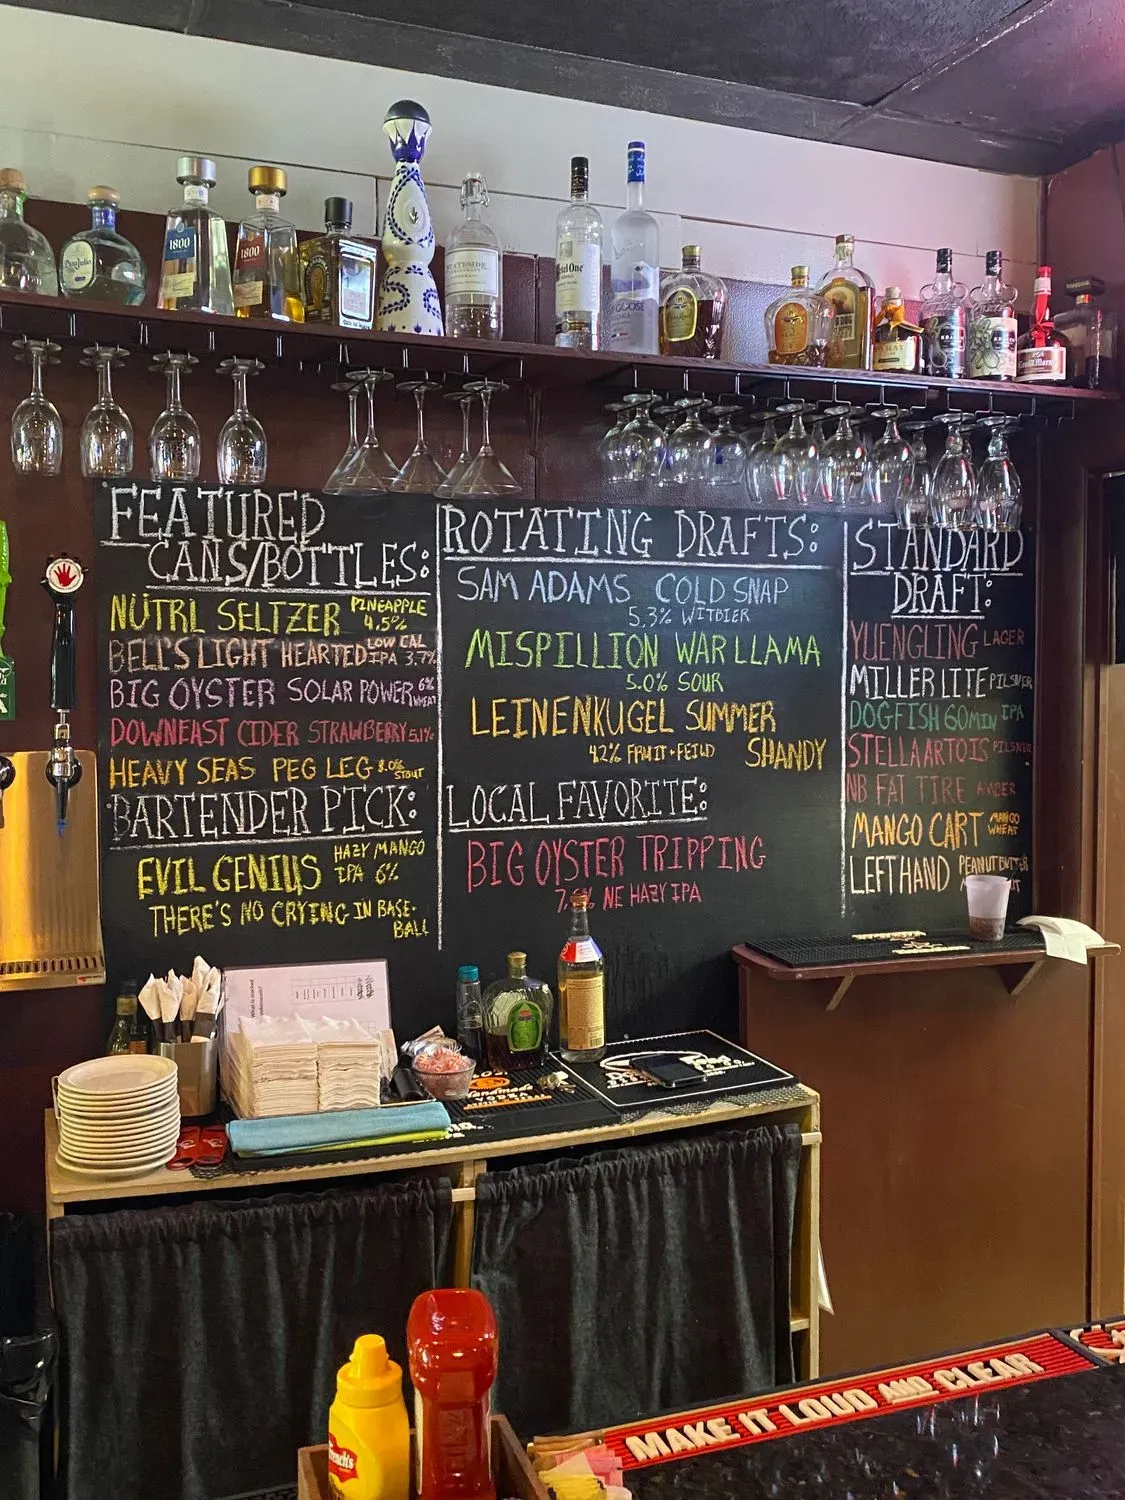 1800
1800
STATESIDE
GOOSE
FEATURED
CANS/BOTTLES:
NÜTRL SELTZER PINEAPPLE
4.5%
BELL'S LIGHT HEARTED LOW CAL
IPA 3.7%
BIG OYSTER SOLAR POWER 6%
WHEAT
DOWNEAST CIDER STRAWBERRY 5.1%
HEAVY SEAS PEG LEG 8.0%
STOUT
BARTENDER PICK:
EVIL GENIUS HAZY MANGO
IPA 6%
THERE'S NO CRYING IN BASE-
BALL
ROTATING DRAFTS:
SAM ADAMS COLD SNAP
5.3% WITBIER
MISPILLION WAR LLAMA
5.0% SOUR
LEINENKUGEL SUMMER
4.2% FRUIT+FEILD SHANDY
LOCAL FAVORITE:
BIG OYSTER TRIPPING
NE HAZY IPA
STANDARD
DRAFT:
YUENGLING LAGER
MILLER LITE PILSNER
DOGFISH 60MIN IPA
STELLA ARTOIS PILSNER
NB FAT TIRE AMBER
MANGO CART MANGO
WHEAT
LEFTHAND PEANUT BUTTER
Handmade
VODKA
French's
MAKE IT LOUD AND CLEAR